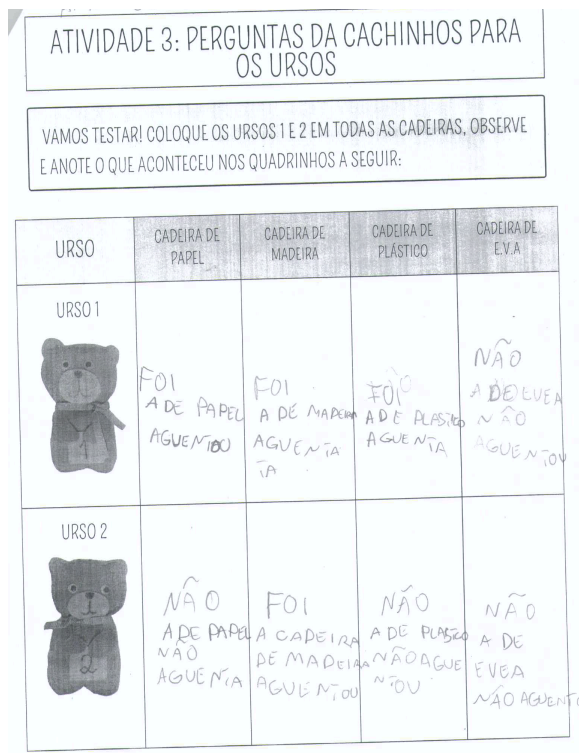 ATIVIDADE 3: PERGUNTAS DA CACHINHOS PARA
OS URSOS
VAMOS TESTAR! COLOQUE OS URSOS 1 E 2 EM TODAS AS CADEIRAS, OBSERVE
E ANOTE O QUE ACONTECEU NOS QUADRINHOS A SEGUIR:
URSO
CADEIRA DE
PAPEL
CADEIRA DE
MADEIRA
CADEIRA DE
PLÁSTICO
CADEIRA DE
E.V.A
URSO 1
1
FOI
A DE PAPEL
AGUENTOU
FOI
A DE MADEIRA
AGUENTA
TA
FOI
A DE PLASTICO
AGUENTA
NÃO
A DE EVEA
NÃO
AGUENTOU
URSO 2
2
NÃO
A DE PAPEL
NÃO
AGUENTA
FOI
A CADEIRA
DE MADEIRA
AGUENTOU
NÃO
A DE PLASTICO
NÃO AGUE
NTOU
NÃO
A DE
EVEA
NÃO AGUENTO